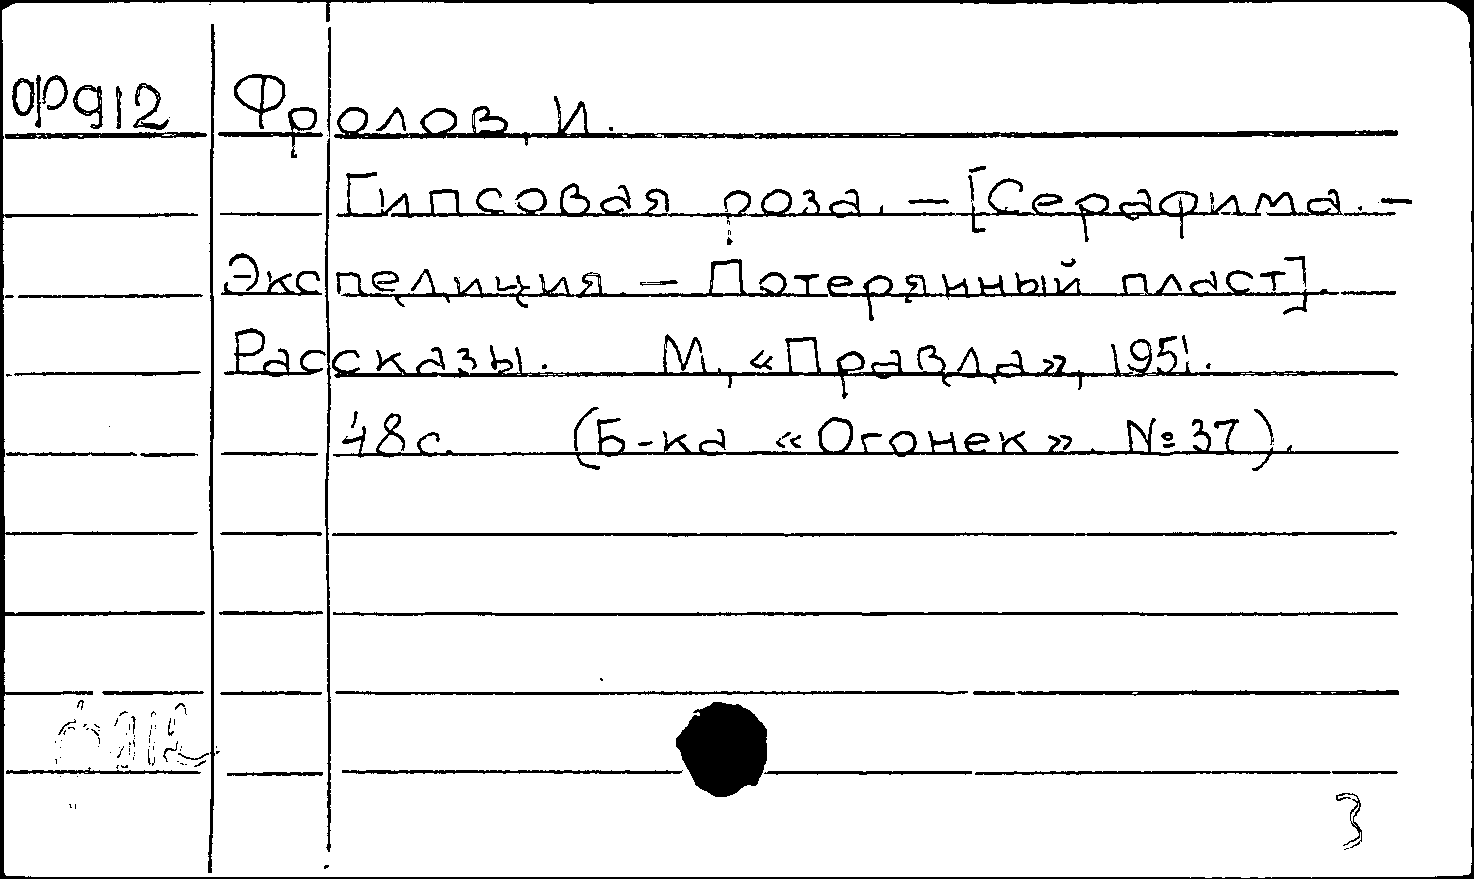 Ф912 Фролов, И.
Гипсовая роза. - [Серафима. -
Экспедиция - Потерянный пласт].
Рассказы. М., «Правда», 1951.
48 с. (Б-ка «Огонек». № 37).
ф912
3